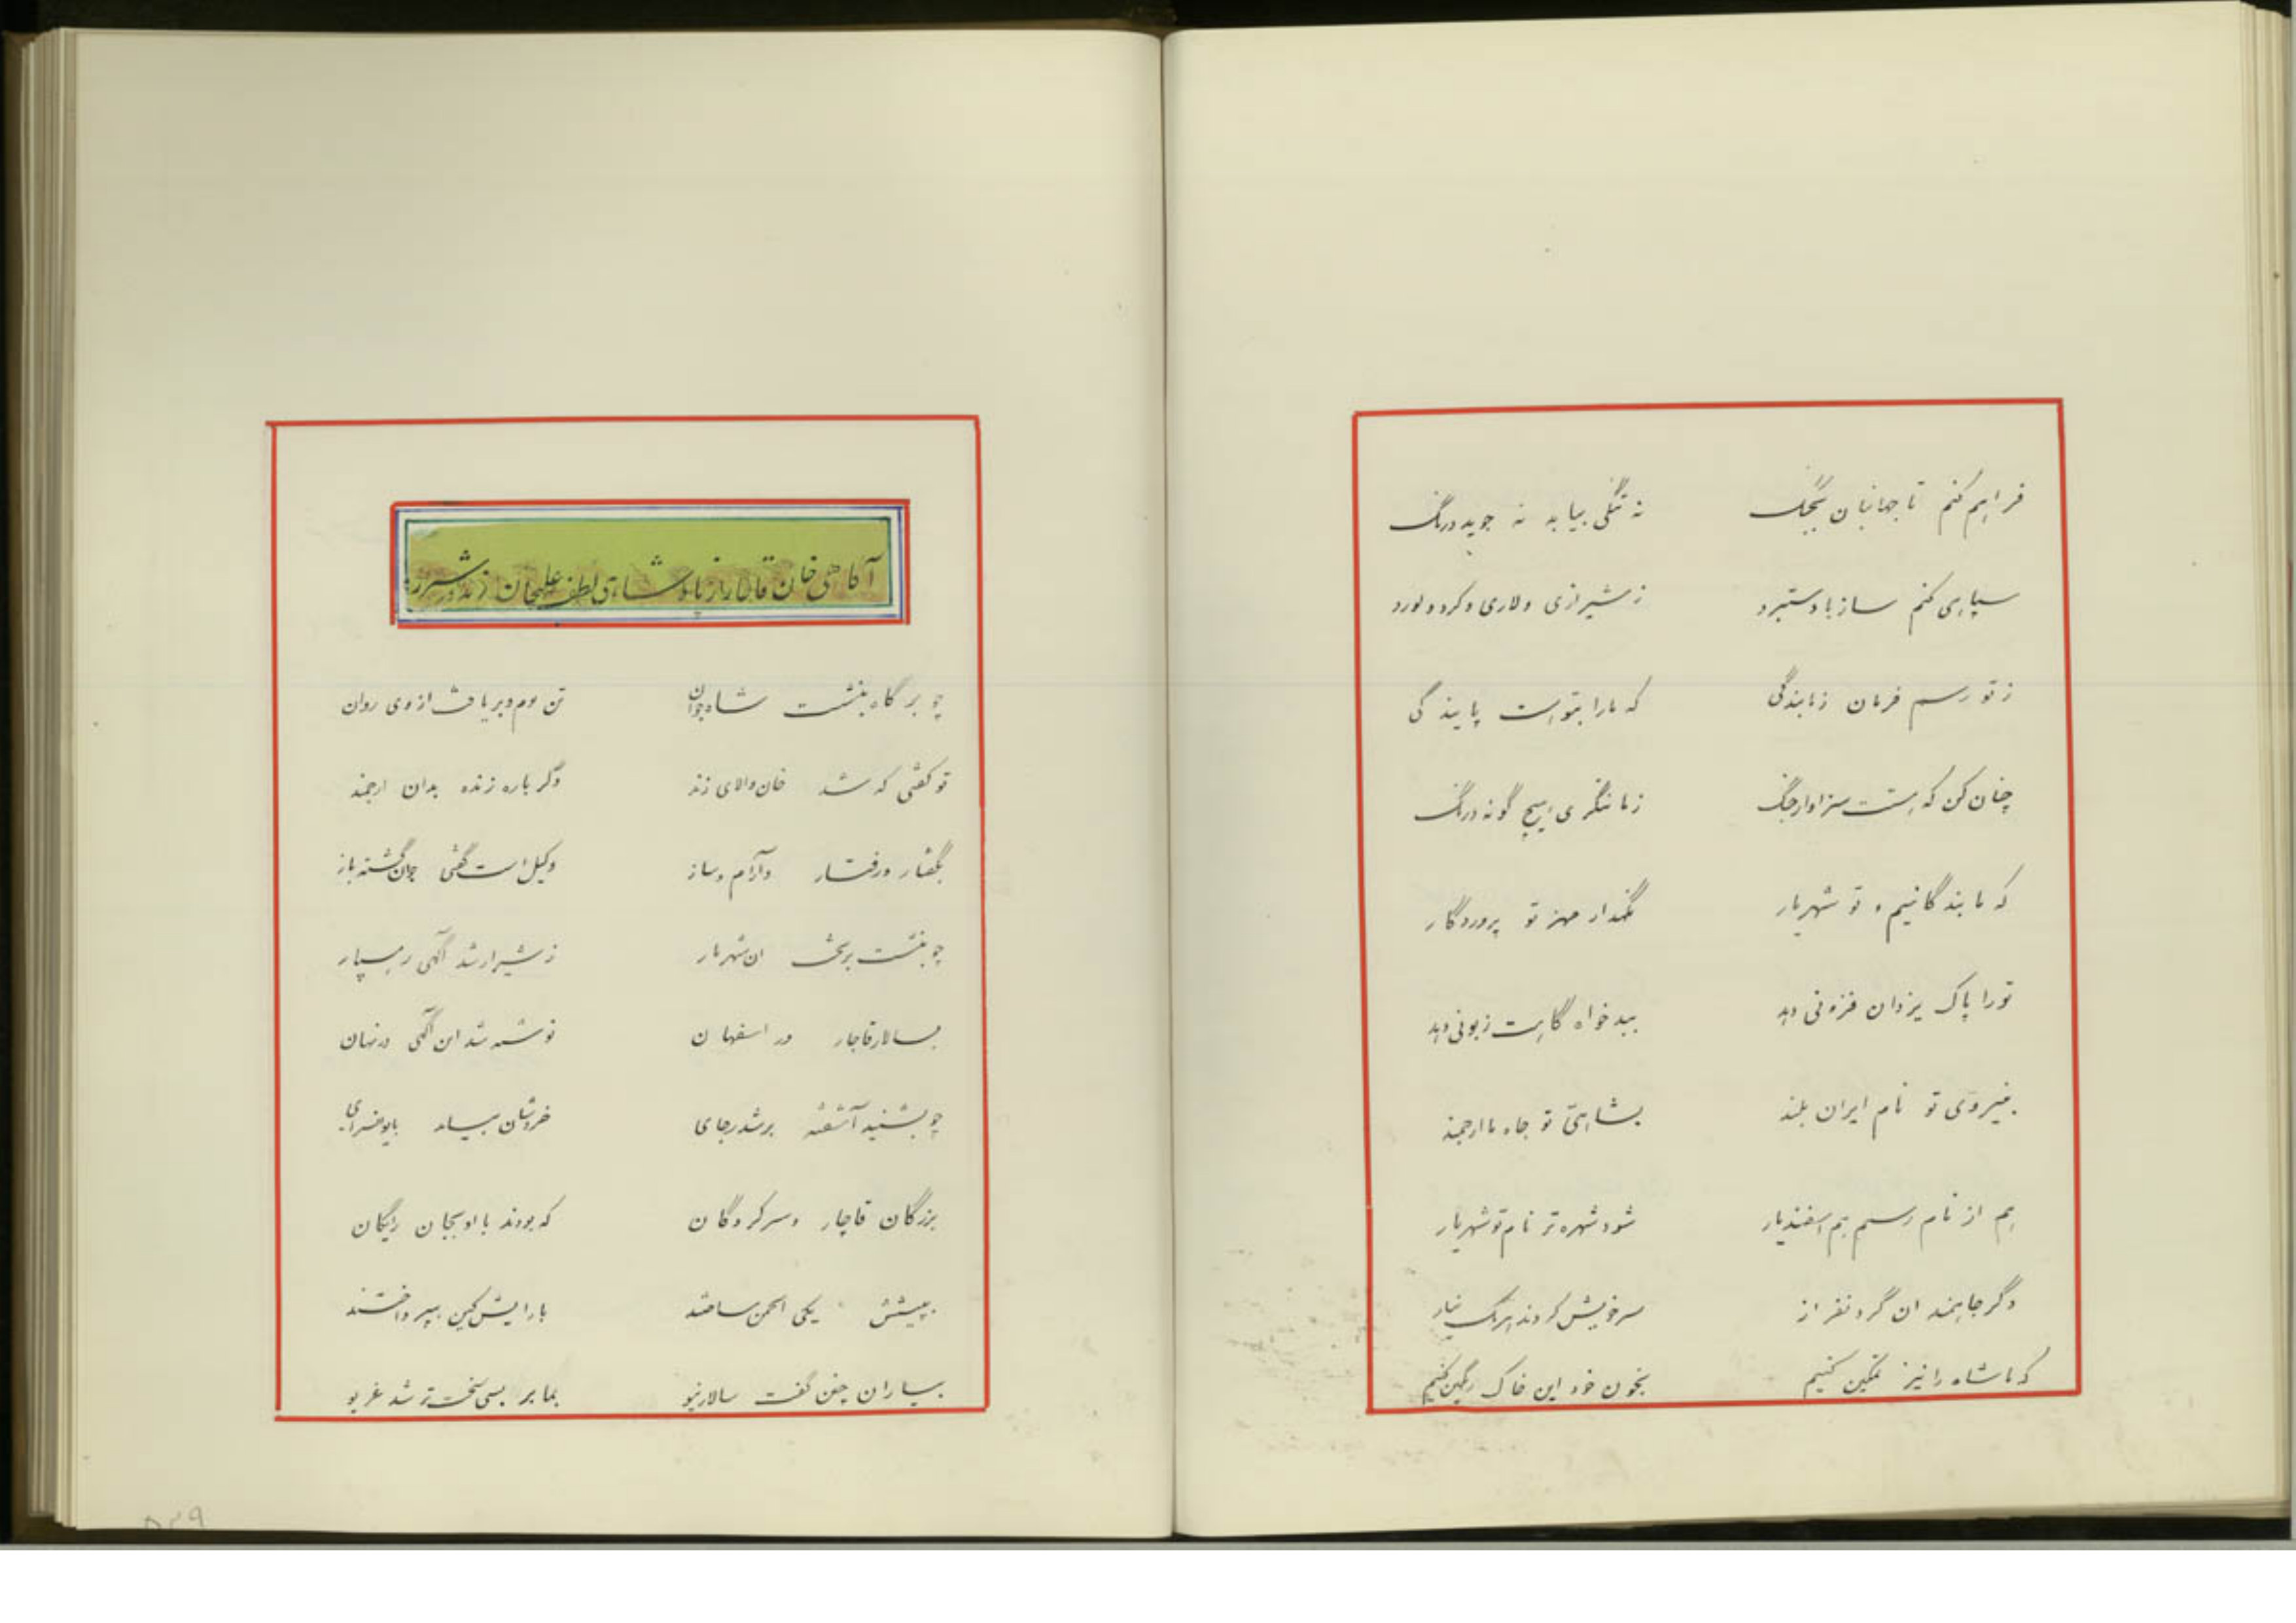 فراهم کنم تا جهانبان بجنگ نه تنگی بیابد نه جوید درنگ
سپاهی کنم ساز با دستبرد ز شیرازی و لاری و کرد و لورد
ز تو رسم فرمان ز ما بندگی که ما را بتو است پایندگی
چنان کن که هست سزاوار جنگ ز ما ننگری هیچ گونه درنگ
که ما بندگانیم و تو شهریار نگهدار تو پروردگار
تو را پاک یزدان فزونی دهد ببدخواه گاهت زبونی دهد
بنیروی تو نام ایران بلند بشاهی تو جاه ما ارجمند
هم از نام رستم هم اسفندیار شود شهره تر نام تو شهریار
دگر جاهمند ان گردنفراز سر خویش کردند نیاز
که ما شاه را نیز تمکین کنیم بخون خود این خاک رنگین کنیم
آگاهی خان قاجار از پادشاهی لطفعلیخان زند در شیراز
چو بر گاه بنشست شاه جوان تن و بر یافت از وی روان
تو گفتی که شد خان والای زند دگر باره زنده بدان ارجمند
بگفتار و رفتار و آرام و ساز وکیل است گفتی جوان گشته باز
چو بنشست بر تخت ان شهریار ز شیراز شد آگهی رهسپار
بسالار قاجار در اسفهان نوشته شد ان آگهی در نهان
چو بشنید آشفته بر شد ز جای خروشان بیامد
بزرگان قاچار و سرکردگان که بودند با او بجان رایگان
به پیشش یکی انجمن ساختند بارایش کین بپرداختند
بیاران چنین گفت سالار نیو بما بر بسی سخت تر شد غریو
۵۲۹